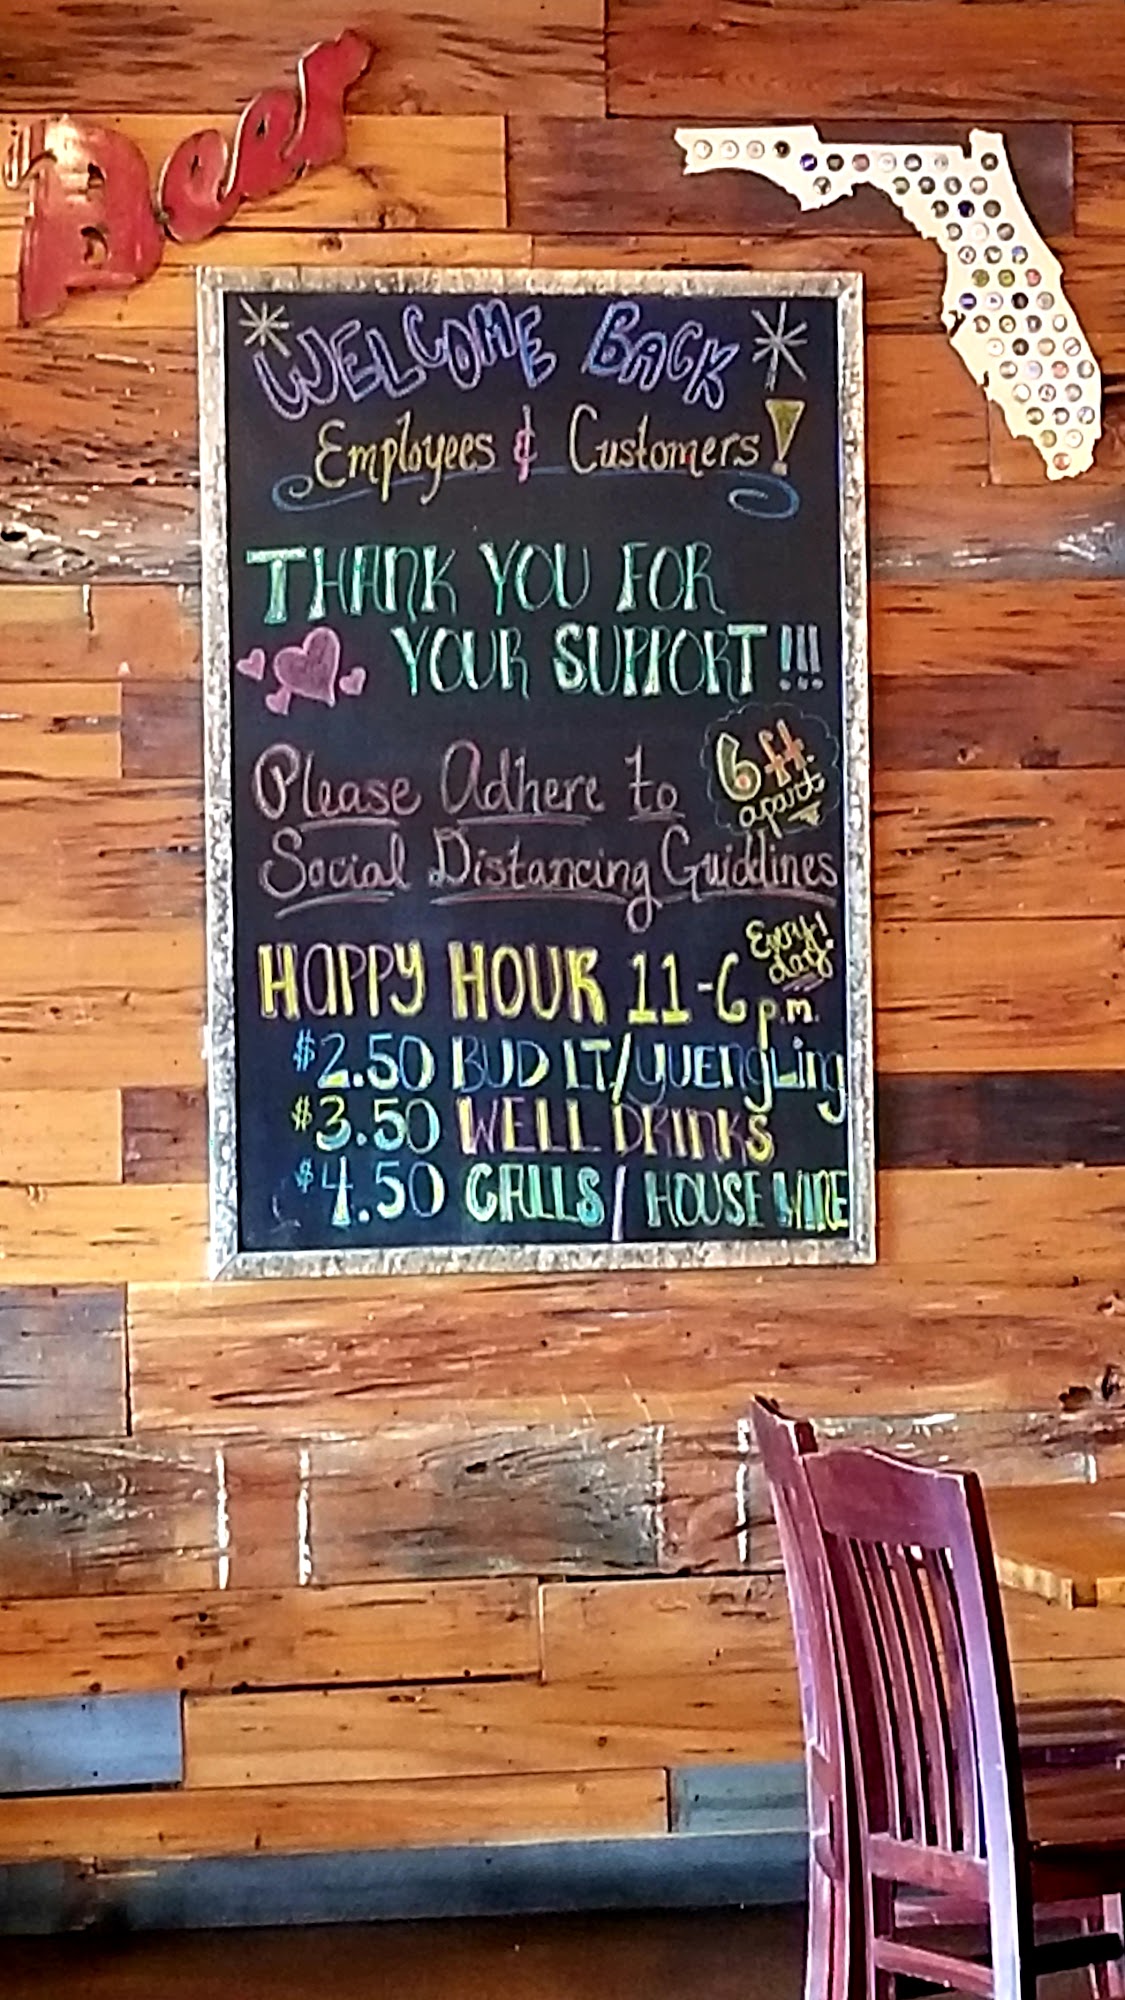 Beer
WELCOME BACK
Employees & Customers!
THANK YOU FOR
YOUR SUPPORT!!!
6ft.
apart
Please Adhere to
Social Distancing Guidelines
Every!
day!
HAPPY HOUR 11-6 p.m.
$2.50 BUD LT/YUENgLing
$3.50 WELL DRINKS
$4.50 CALLS/ HOUSE WINE